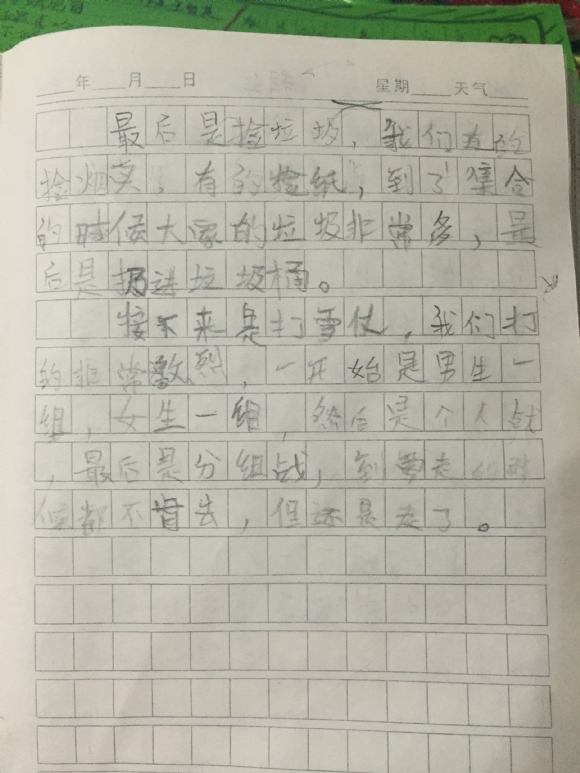 年 月 日 星期 天气
最后是捡垃圾，我们有的
捡烟头，有的捡纸，到了集合
的时候大家的垃圾非常多，最
后是扔进垃圾桶。
接下来是打雪仗，我们打
的非常激烈，一开始是男生一
组，女生一组，然后是个人战
，最后是分组战，到要走的时
候都不肯去，但还是走了。